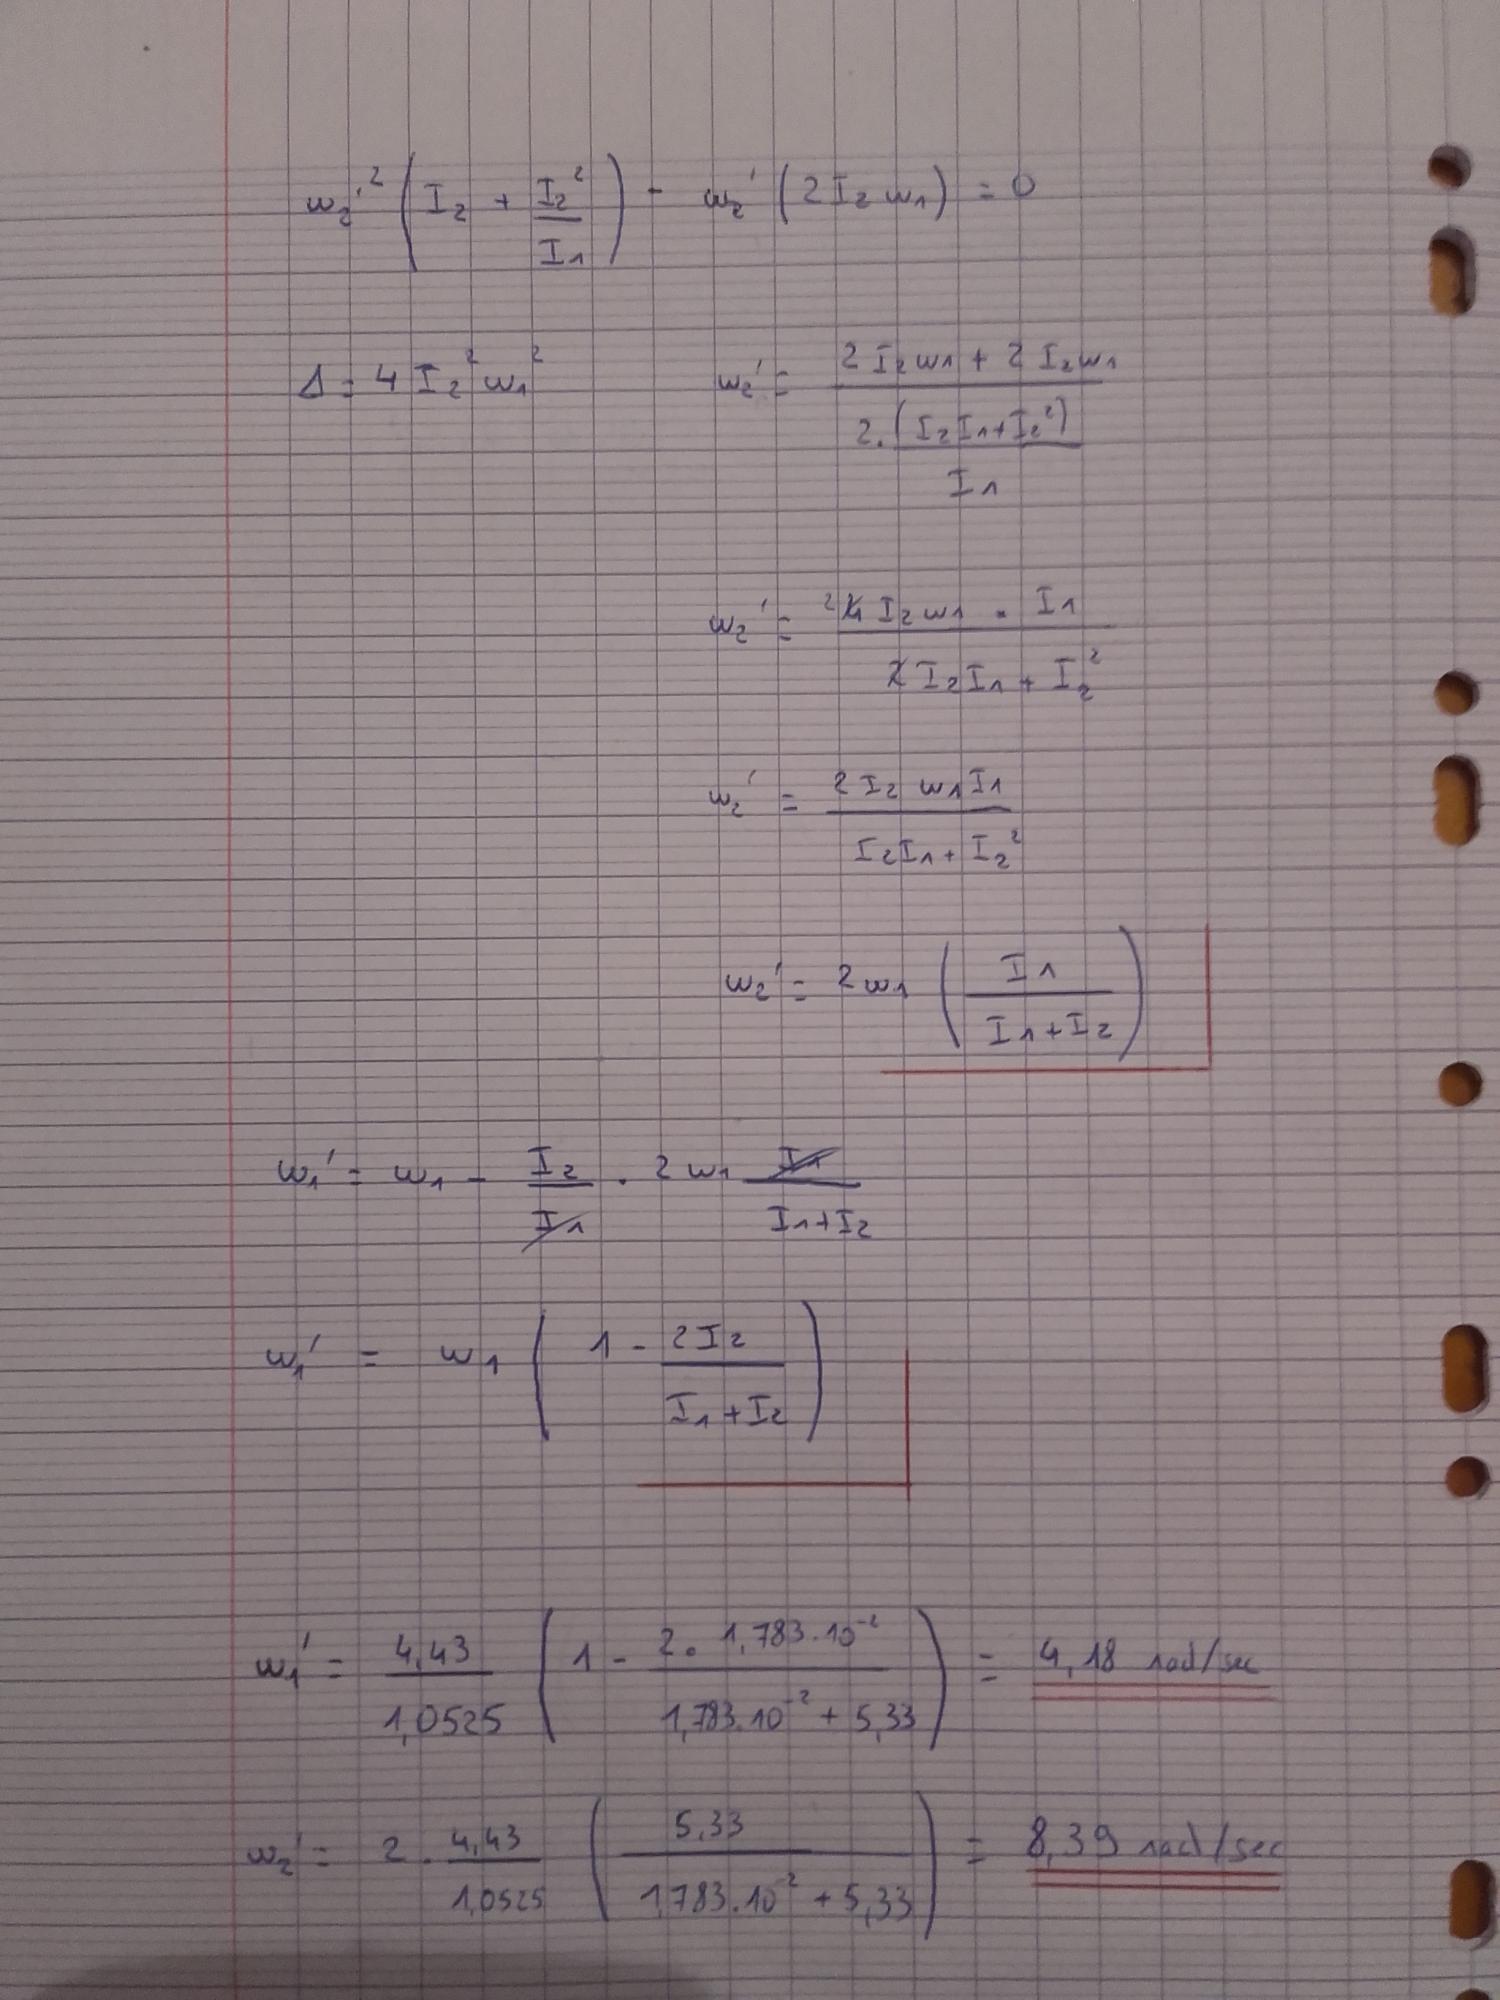 ω₂'² (I₂ + I₂²/I₁) - ω₂' (2 I₂ ω₁) = 0
Δ = 4 I₂² ω₁²
ω₂' = (2 I₂ ω₁ + 2 I₂ ω₁) / (2.(I₂ I₁ + I₂²) / I₁)
ω₂' = ²4 I₂ ω₁ . I₁ / 2 I₂ I₁ + I₂²
ω₂' = 2 I₂ ω₁ I₁ / I₂ I₁ + I₂²
ω₂' = 2 ω₁ (I₁ / I₁ + I₂)
ω₁' = ω₁ - I₂/I₁ . 2 ω₁ I₁ / I₁ + I₂
ω₁' = ω₁ (1 - 2 I₂ / I₁ + I₂)
ω₁' = 4,43/1,0525 (1 - 2. 1,783.10⁻² / 1,783.10⁻² + 5,33) = 4,18 rad/sec
ω₂' = 2 . 4,43/1,0525 (5,33 / 1,783.10⁻² + 5,33) = 8,39 rad/sec